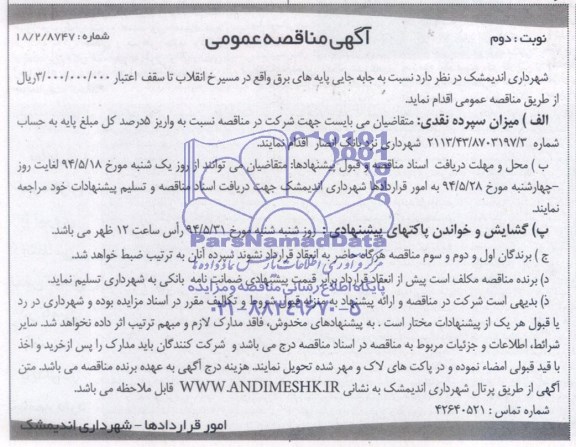 نوبت : دوم
آگهی مناقصه عمومی
شماره : ۱۸/۲/۸۷۴۷
شهرداری اندیمشک در نظر دارد نسبت به جابه جایی پایه های برق واقع در مسیر خ انقلاب تا سقف اعتبار ۳/۰۰۰/۰۰۰/۰۰۰ریال
از طریق مناقصه عمومی اقدام نماید.
الف ) میزان سپرده نقدی: متقاضیان می بایست جهت شرکت در مناقصه نسبت به واریز ۵درصد کل مبلغ پایه به حساب
شماره ۲۱۱۳/۴۳/۸۷۰۳۱۹۷/۳ شهرداری نزد بانک انصار اقدام نمایند.
ب ) محل و مهلت دریافت اسناد مناقصه و قبول پیشنهادها: متقاضیان می توانند از روز یک شنبه مورخ ۹۴/۵/۱۸ لغایت روز
چهارشنبه مورخ ۹۴/۵/۲۸ به امور قراردادها شهرداری اندیمشک جهت دریافت اسناد مناقصه و تسلیم پیشنهادات خود مراجعه
نمایند.
پ) گشایش و خواندن پاکتهای پیشنهادی : روز شنبه مورخ ۹۴/۵/۳۱ رأس ساعت ۱۲ ظهر می باشد.
ج ) برندگان اول و دوم و سوم مناقصه هرگاه حاضر به انعقاد قرارداد نشوند سپرده آنان به ترتیب ضبط خواهد شد.
د) برنده مناقصه مکلف است پیش از انعقاد قرارداد برابر قیمت پیشنهادی ضمانت نامه بانکی به شهرداری تسلیم نماید.
د) بدیهی است شرکت در مناقصه و ارائه پیشنهاد به منزله قبول شروط و تکالیف مقرر در اسناد مزایده بوده و شهرداری در رد
یا قبول هر یک از پیشنهادات مختار است . به پیشنهادهای مخدوش، فاقد مدارک لازم و مبهم ترتیب اثر داده نخواهد شد. سایر
شرائط، اطلاعات و جزئیات مربوط به مناقصه در اسناد مناقصه درج می باشد و شرکت کنندگان باید مدارک را پس ازخرید و اخذ
با قید قبولی امضاء نموده و در پاکت های لاک و مهر شده تحویل نمایند. هزینه درج آگهی به عهده برنده مناقصه می باشد. متن
آگهی از طریق پرتال شهرداری اندیمشک به نشانی WWW.ANDIMESHK.IR قابل ملاحظه می باشد.
شماره تماس : ۴۲۶۴۰۵۲۱
امور قراردادها – شهرداری اندیمشک
ParsNamadData
پایگاه اطلاع رسانی مناقصه و مزایده
۰۲۱-۸۸۳۴۹۶۷۰-۵